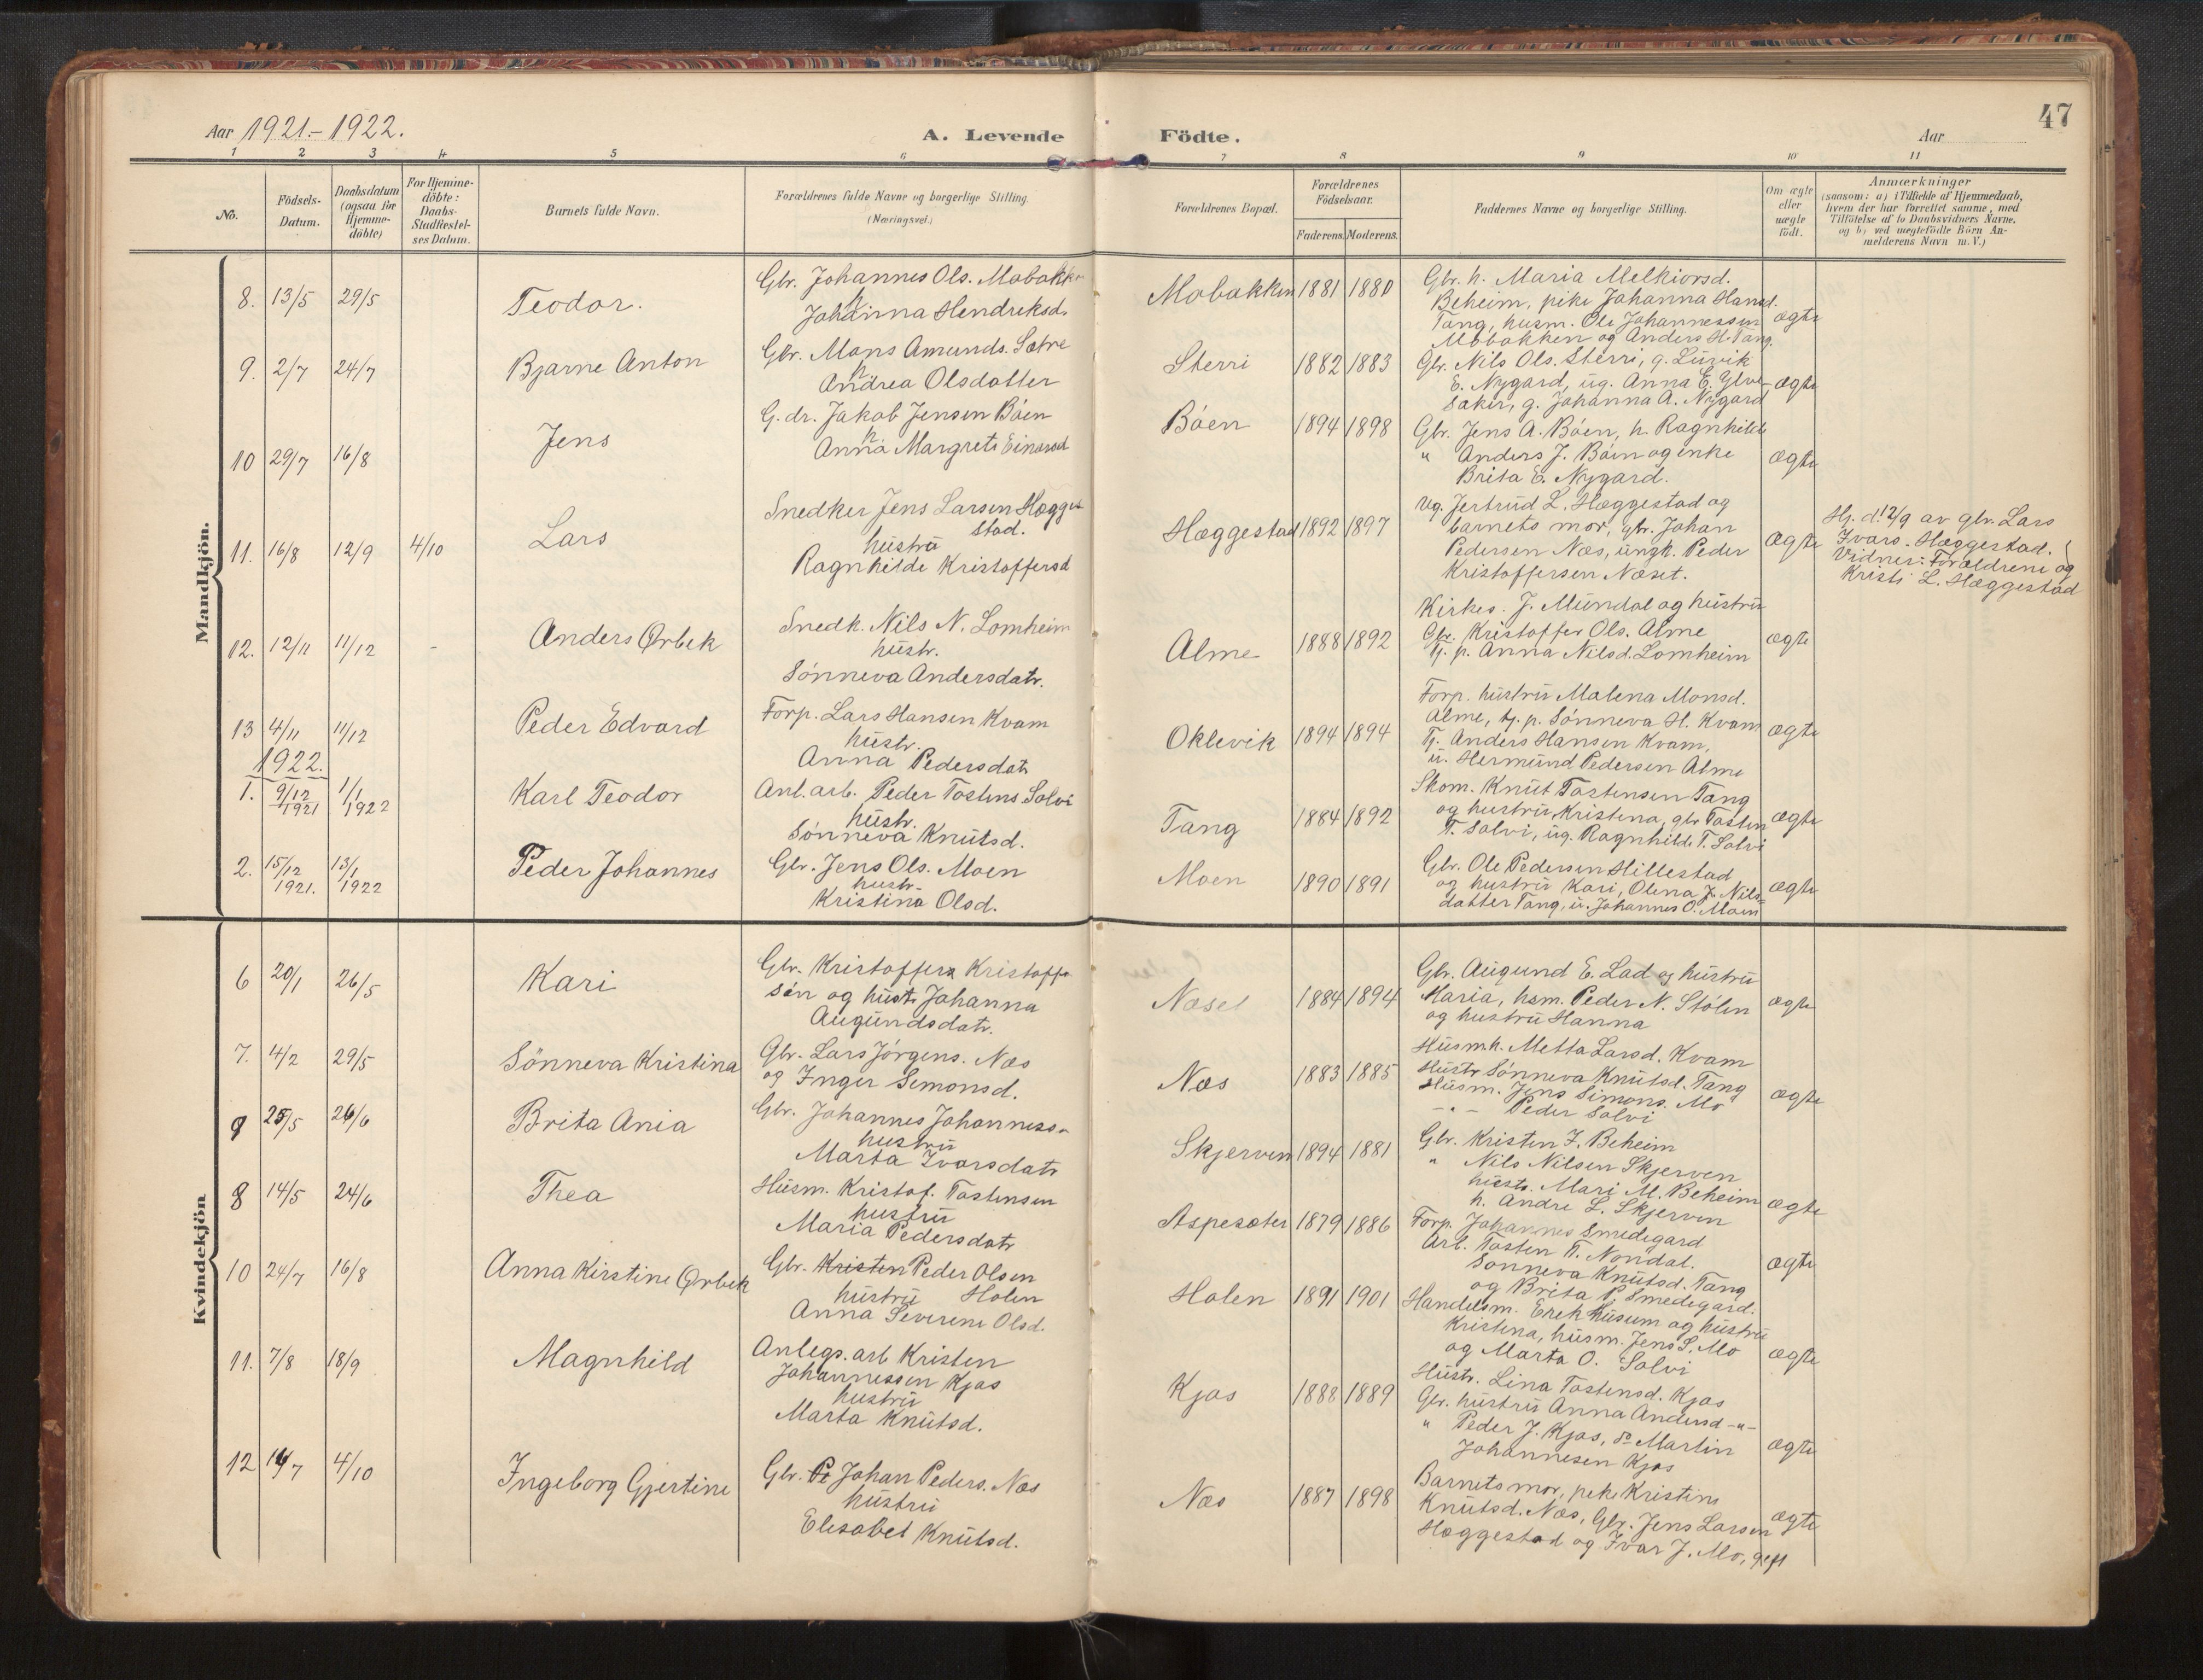 47
Aar 1921.-1922.
A. Levende Födte.
Aar
1 2 3 4 5 6 7 8 9 10 11
No.
Födsels-Datum.
Daabsdatum (ogsaa for Hjemme-döbte)
For Hjemme-döbte: Daabs-Stadfæstel-ses Datum.
Barnets fulde Navn.
Forældrenes fulde Navne og borgerlige Stilling.
(Næringsvei.)
Forældrenes Bopæl.
Forældrenes Födselsaar.
Faderens. Moderens.
Faddernes Navne og borgerlige Stilling.
Om ægte eller uægte födt.
Anmærkninger
(saasom: a) i Tilfælde af Hjemmedaab,
hvem der har forrettet samme, med
Tilföielse af to Daabsvidners Navne,
og b) ved uægtefödte Börn An-
melderens Navn m. V.)
Mandkjön.
8. 13/5 29/5 Teodor.
Gbr. Johannes Ols. Mobakken
h.
Johanna Hendriksd.
Mobakken 1881 1880
Gbr. h. Maria Melkiorsd.
Beheim, pike Johanna Hansd.
Tang, husm. Ole Johannessen
Mobakken og Anders H. Tang.
ægte
9. 2/7 24/7 Bjarne Anton
Gbr. Mons Amunds. Sætre
h.
Andrea Olsdatter
Sterri 1882 1883
Gbr. Nils Ols. Sterri, g. Luvik
E. Nygard, ug. Anna E. Ylve-
saker, g. Johanna A. Nygard
ægte
10 29/7 16/8 Jens
G.dr. Jakob Jensen Böen
h.
Anna Margrete Einarsd
Böen 1894 1898
Gbr. Jens A. Böen, h. Ragnhilde
" Anders J. Böen og enke
Brita E. Nygard.
ægte
11. 16/8 12/9 4/10 Lars
Snedker Jens Larsen Hægge-
stad.
hustru
Ragnhilde Kristoffersd
Hæggestad 1892 1897
Ug. Jertrud L. Hæggestad og
barnets mor, gbr. Johan
Pedersen Næs, ungk. Peder
Kristoffersen Næset.
ægte
Hj. d. 12/9 av gbr. Lars
Ivars. Hæggestad.
Vidner: Forældrene og
Kristi L. Hæggestad
12. 12/11 11/12 - Anders Ørbek
Snedk. Nils N. Lomheim
hustr.
Sönneva Andersdatr.
Alme 1888 1892
Kirkes. J. Mundal og hustru
Gbr. Kristoffer Ols. Alme
Tj. p. Anna Nilsd. Lomheim
ægte
13 4/11 11/12 Peder Edvard
Forp. Lars Hansen Kvam
hustr.
Anna Pedersdatr
Oklevik 1894 1894
Forp. hustru Malena Monsd.
Alme, tj. p. Sönneva H. Kvam
Tj. Anders Hansen Kvam,
u. Hermund Pedersen Alme
ægte
1922.
1. 9/12 1921 1/1 1922 Karl Teodor
Anl. arb. Peder Tostens Solvi
hustr.
Sönneva Knutsd.
Tang 1884 1892
Skom. Knut Tostensen Tang
og hustru Kristina, gbr Tosten
T. Solvi, ug. Ragnhilde T. Solvi
ægte
2. 15/12 1921. 13/1 1922 Peder Johannes
Gbr. Jens Ols. Moen
hustr.
Kristina Olsd.
Moen 1890 1891
Gbr. Ole Pedersen Hillestad
og hustru Kari, Olena J. Nils-
datter Tang, u. Johannes O. Moen
ægte
Kvindekjön
6 20/1 26/5 Kari
Gbr. Kristoffer Kristoffer
sön og hustr Johanna
Augundsdatr.
Næset 1884 1894
Gbr. Augund E. Lad og hustru
Maria, hsm. Peder N. Stölen
og hustru Hanna
ægte
7. 4/2 29/5 Sönneva Kristina
Gbr. Lars Jörgens. Næs
og Inger Semonsd.
Næs 1883 1885
Husm.h. Metta Larsd. Kvam
Hustr Sönneva Knutsd. Tang
Husm. Jens Simons. Mo
-"- Peder Solvi
ægte
9 25/5 26/6 Brita Ania
Gbr. Johannes Johanness.
hustru
Marta Ivarsdatr
Skjerven 1894 1881
Gbr. Kristen J. Beheim
" Nils Nilsen Skjerven
hustr. Mari M. Beheim
h. Andre L. Skjerven
ægte
8 14/5 24/6 Thea
Husm. Kristof. Tostensen
hustru
Maria Pedersdatr
Aspesæter 1879 1886
Forp. Johannes Smedegard
Arb. Tosten T. Nondal.
Sönneva Knutsd. Tang
og Brita P. Smedegard.
ægte
10 24/7 16/8 Anna Kirstine Ørbek
Gbr. Kristen Peder Olsen
hustru Holen
Anna Severine Olsd.
Holen 1891 1901
Handelsm. Erek Husum og hustru
Kristina, husm. Jens S. Mo
og Marta O. Solvi
ægte
11. 7/8 18/9 Magnhild
Anlegs. arb Kristen
Johannessen Kjos
hustru
Marta Knutsd.
Kjos 1888 1889
Hustr. Lina Tostensd. Kjos
Gbr. hustru Anna Andersd -"-
" Peder J. Kjos, do Martin
Johannesen Kjos
ægte
12 14/7 4/10 Ingeborg Gjertine
Gbr. Pe Johan Peders. Næs
hustru
Elisabet Knutsd.
Næs 1887 1898
Barnets mor, pike Kristine
Knutsd. Næs, Gbr. Jens Larsen
Hæggestad og Ivar J. Mo, gift
ægte